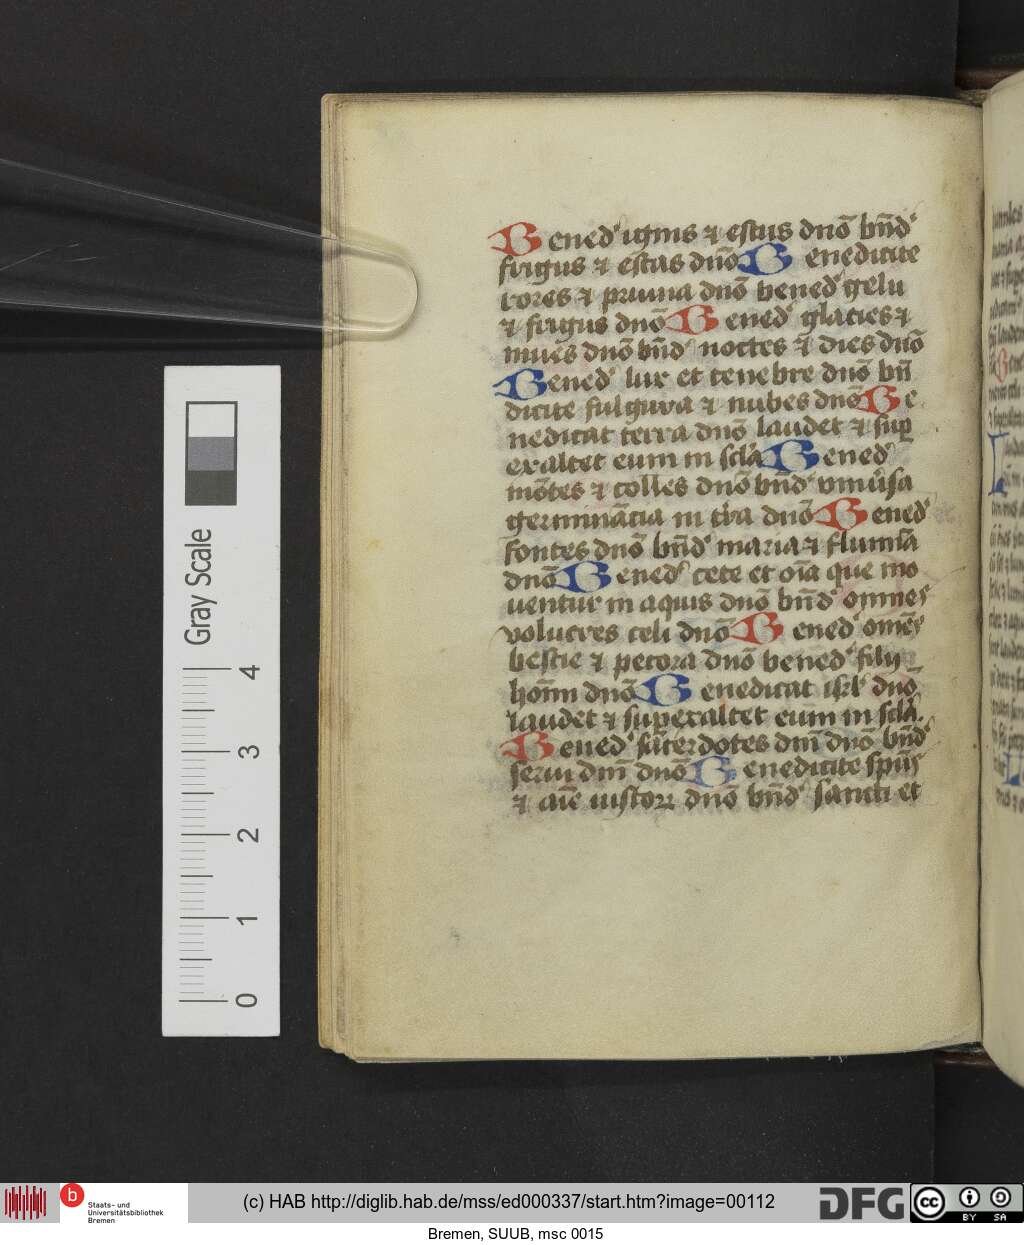 Bened' ignis ⁊ estus dnō bn̄d'
frigus ⁊ estas dnō Benedicite
rores ⁊ pruina dnō bened' gelu
⁊ frigus dnō Bened' glacies ⁊
niues dnō bn̄d' noctes ⁊ dies dnō
Bened' lux et tenebre dnō bn̄
dicite fulgura ⁊ nubes dnō Be
nedicat terra dnō laudet ⁊ suꝑ
exaltet eum in scl'a Bened'
mōtes ⁊ colles dnō bn̄d' vniūsa
germinācia in t'ra dnō Bened'
fontes dnō bn̄d' maria ⁊ flumīa
dnō Bened' cete et oīa que mo
uentur in aquis dnō bn̄d' omnes
volucres celi dnō Bened' omēs
bestie ⁊ pecora dnō bened' filij
hoīm dnō Benedicat isrl' dnō
laudet ⁊ superexaltet eum in scl'a.
Bened' sac̄erdotes dnī dnō bn̄d'
serui dnī dnō Benedicite spūs
⁊ aīe iustoꝝ dnō bn̄d' sancti et
Gray Scale
4
3
2
1
0
b
Staats- und
Universitätsbibliothek
Bremen
(c) HAB http://diglib.hab.de/mss/ed000337/start.htm?image=00112
DFG
cc
BY
SA
Bremen, SUUB, msc 0015